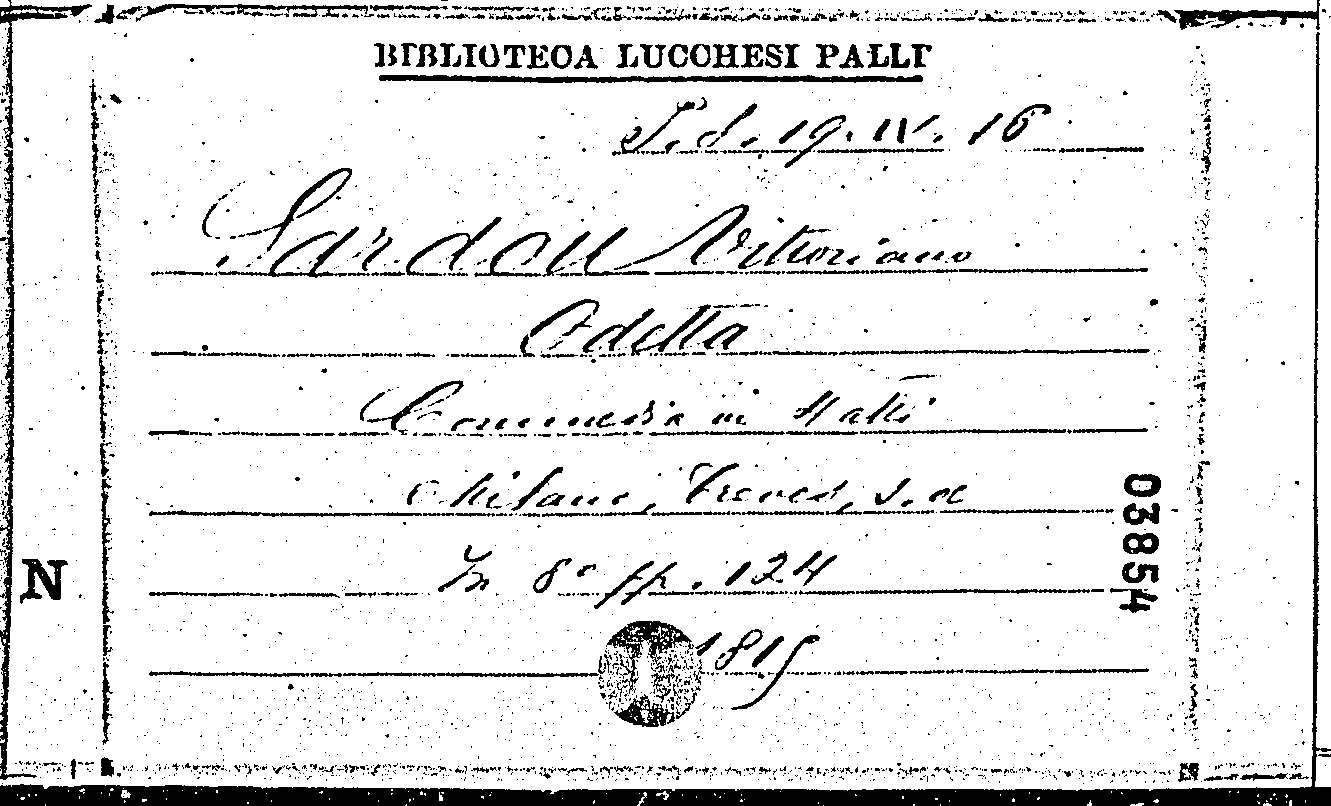 BIBLIOTECA LUCCHESI PALLI
S. d. 19. IV. 16
Sardou Vittoriano
Odetta
Commedia in 4 atti
Milano, Treves, s. d
In 8° pp. 124
03854
N